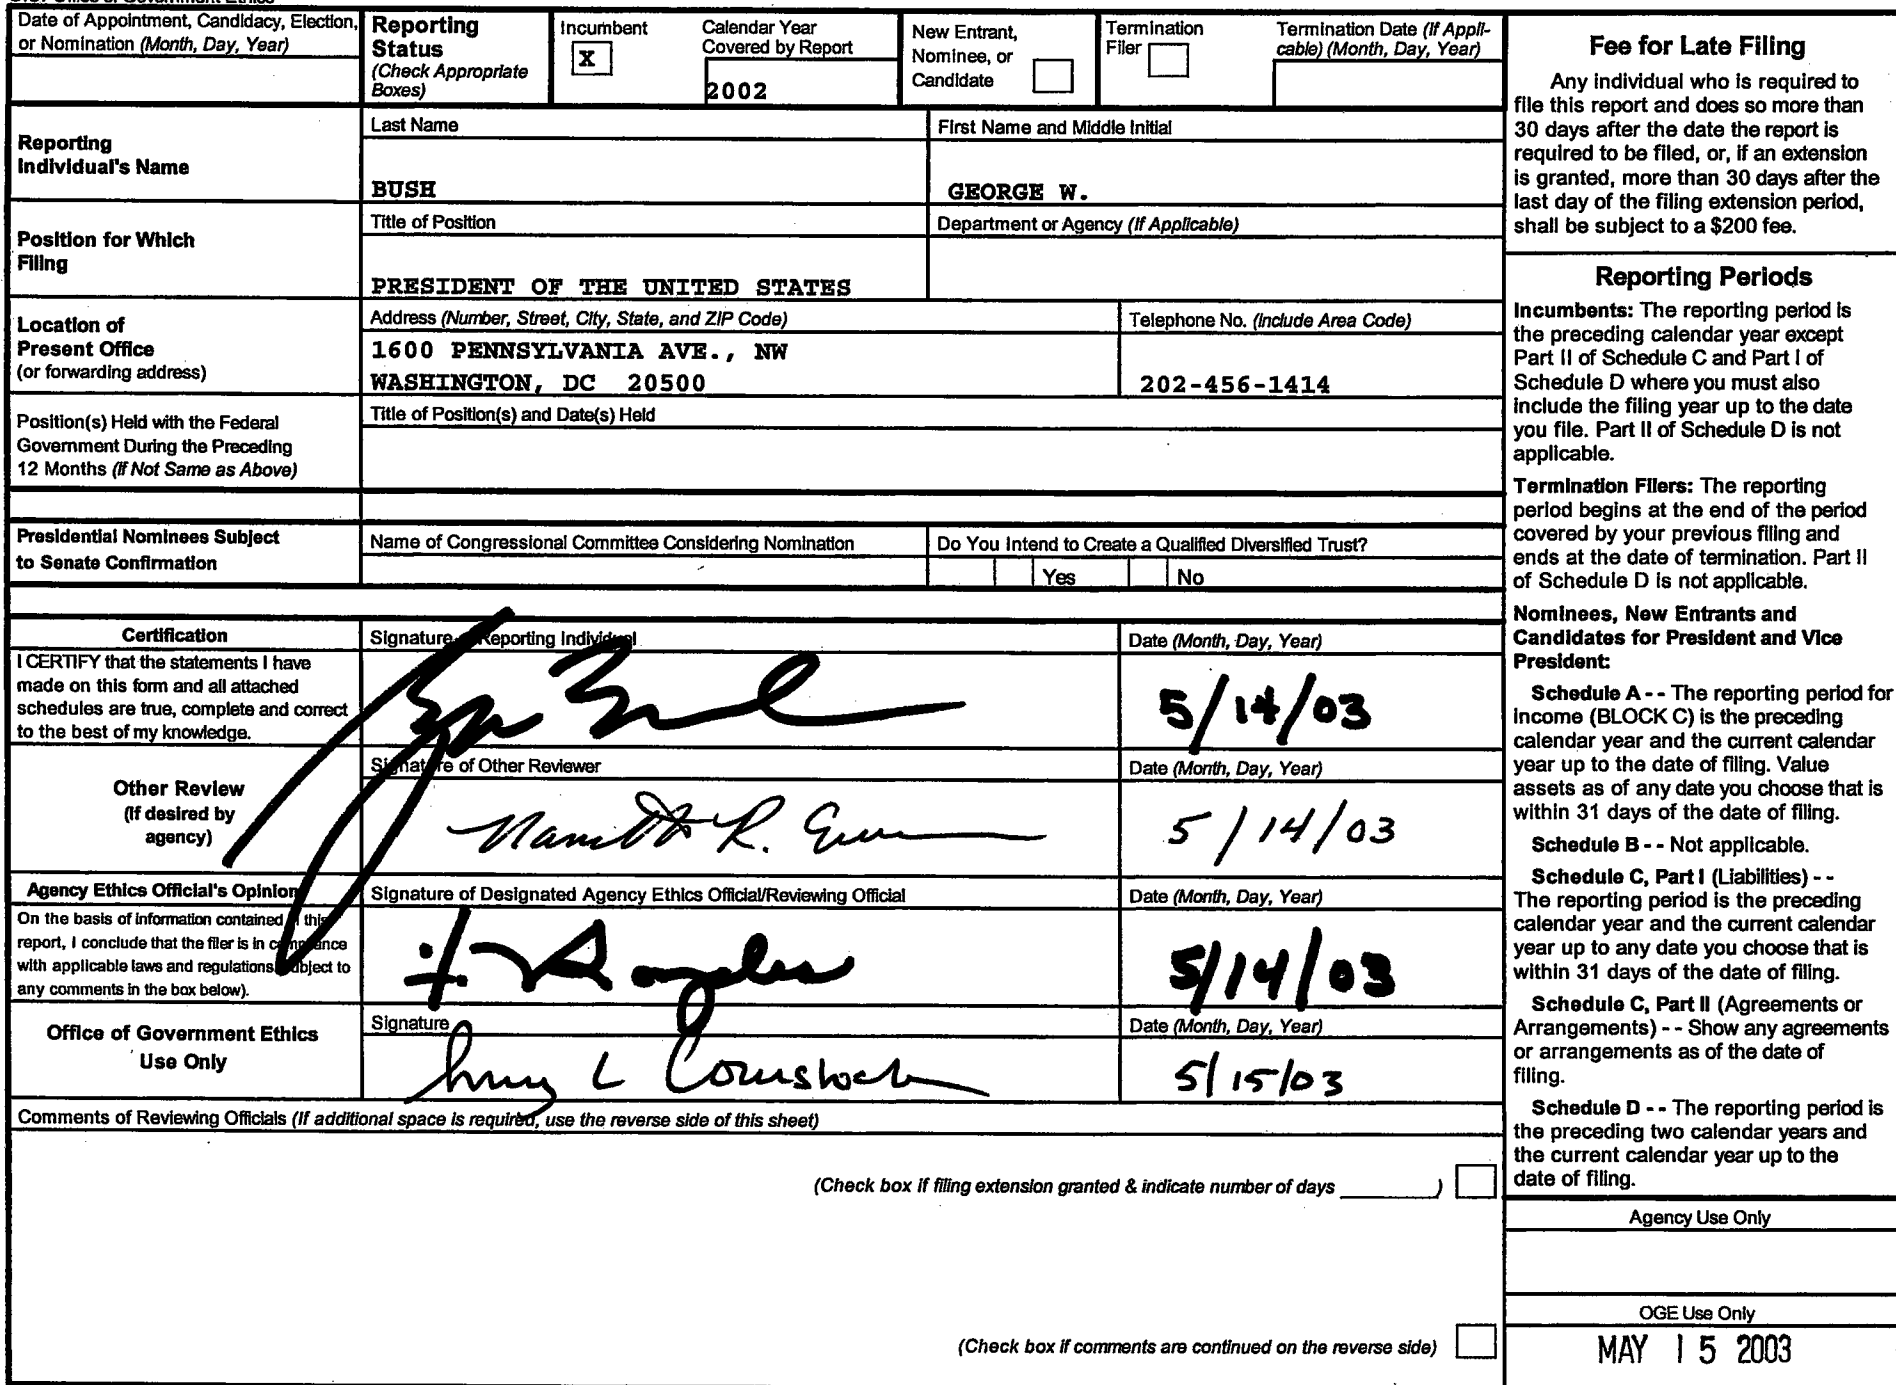 Date of Appointment, Candidacy, Election,
or Nomination (Month, Day, Year)
Reporting
Status
(Check Appropriate
Boxes)
Incumbent
X
Calendar Year
Covered by Report
2002
New Entrant,
Nominee, or
Candidate
Termination
Filer
Termination Date (If Appli-
cable) (Month, Day, Year)
Reporting
Individual's Name
Last Name
BUSH
First Name and Middle Initial
GEORGE W.
Position for Which
Filing
Title of Position
PRESIDENT OF THE UNITED STATES
Department or Agency (If Applicable)
Location of
Present Office
(or forwarding address)
Address (Number, Street, City, State, and ZIP Code)
1600 PENNSYLVANIA AVE., NW
WASHINGTON, DC 20500
Telephone No. (Include Area Code)
202-456-1414
Position(s) Held with the Federal
Government During the Preceding
12 Months (If Not Same as Above)
Title of Position(s) and Date(s) Held
Presidential Nominees Subject
to Senate Confirmation
Name of Congressional Committee Considering Nomination
Do You Intend to Create a Qualified Diversified Trust?
Yes
No
Certification
I CERTIFY that the statements I have
made on this form and all attached
schedules are true, complete and correct
to the best of my knowledge.
Signature Reporting Individual
Date (Month, Day, Year)
5/14/03
Other Review
(If desired by
agency)
Signature of Other Reviewer
R.
Date (Month, Day, Year)
5/14/03
Agency Ethics Official's Opinion
On the basis of information contained in this
report, I conclude that the filer is in compliance
with applicable laws and regulations (subject to
any comments in the box below).
Signature of Designated Agency Ethics Official/Reviewing Official
Date (Month, Day, Year)
5/14/03
Office of Government Ethics
Use Only
Signature
L Comstock
Date (Month, Day, Year)
5/15/03
Comments of Reviewing Officials (If additional space is required, use the reverse side of this sheet)
(Check box if filing extension granted & indicate number of days ________)
(Check box if comments are continued on the reverse side)
Fee for Late Filing
Any individual who is required to
file this report and does so more than
30 days after the date the report is
required to be filed, or, if an extension
is granted, more than 30 days after the
last day of the filing extension period,
shall be subject to a $200 fee.
Reporting Periods
Incumbents: The reporting period is
the preceding calendar year except
Part II of Schedule C and Part I of
Schedule D where you must also
include the filing year up to the date
you file. Part II of Schedule D is not
applicable.
Termination Filers: The reporting
period begins at the end of the period
covered by your previous filing and
ends at the date of termination. Part II
of Schedule D is not applicable.
Nominees, New Entrants and
Candidates for President and Vice
President:
Schedule A - - The reporting period for
income (BLOCK C) is the preceding
calendar year and the current calendar
year up to the date of filing. Value
assets as of any date you choose that is
within 31 days of the date of filing.
Schedule B - - Not applicable.
Schedule C, Part I (Liabilities) - -
The reporting period is the preceding
calendar year and the current calendar
year up to any date you choose that is
within 31 days of the date of filing.
Schedule C, Part II (Agreements or
Arrangements) - - Show any agreements
or arrangements as of the date of
filing.
Schedule D - - The reporting period is
the preceding two calendar years and
the current calendar year up to the
date of filing.
Agency Use Only
OGE Use Only
MAY 15 2003